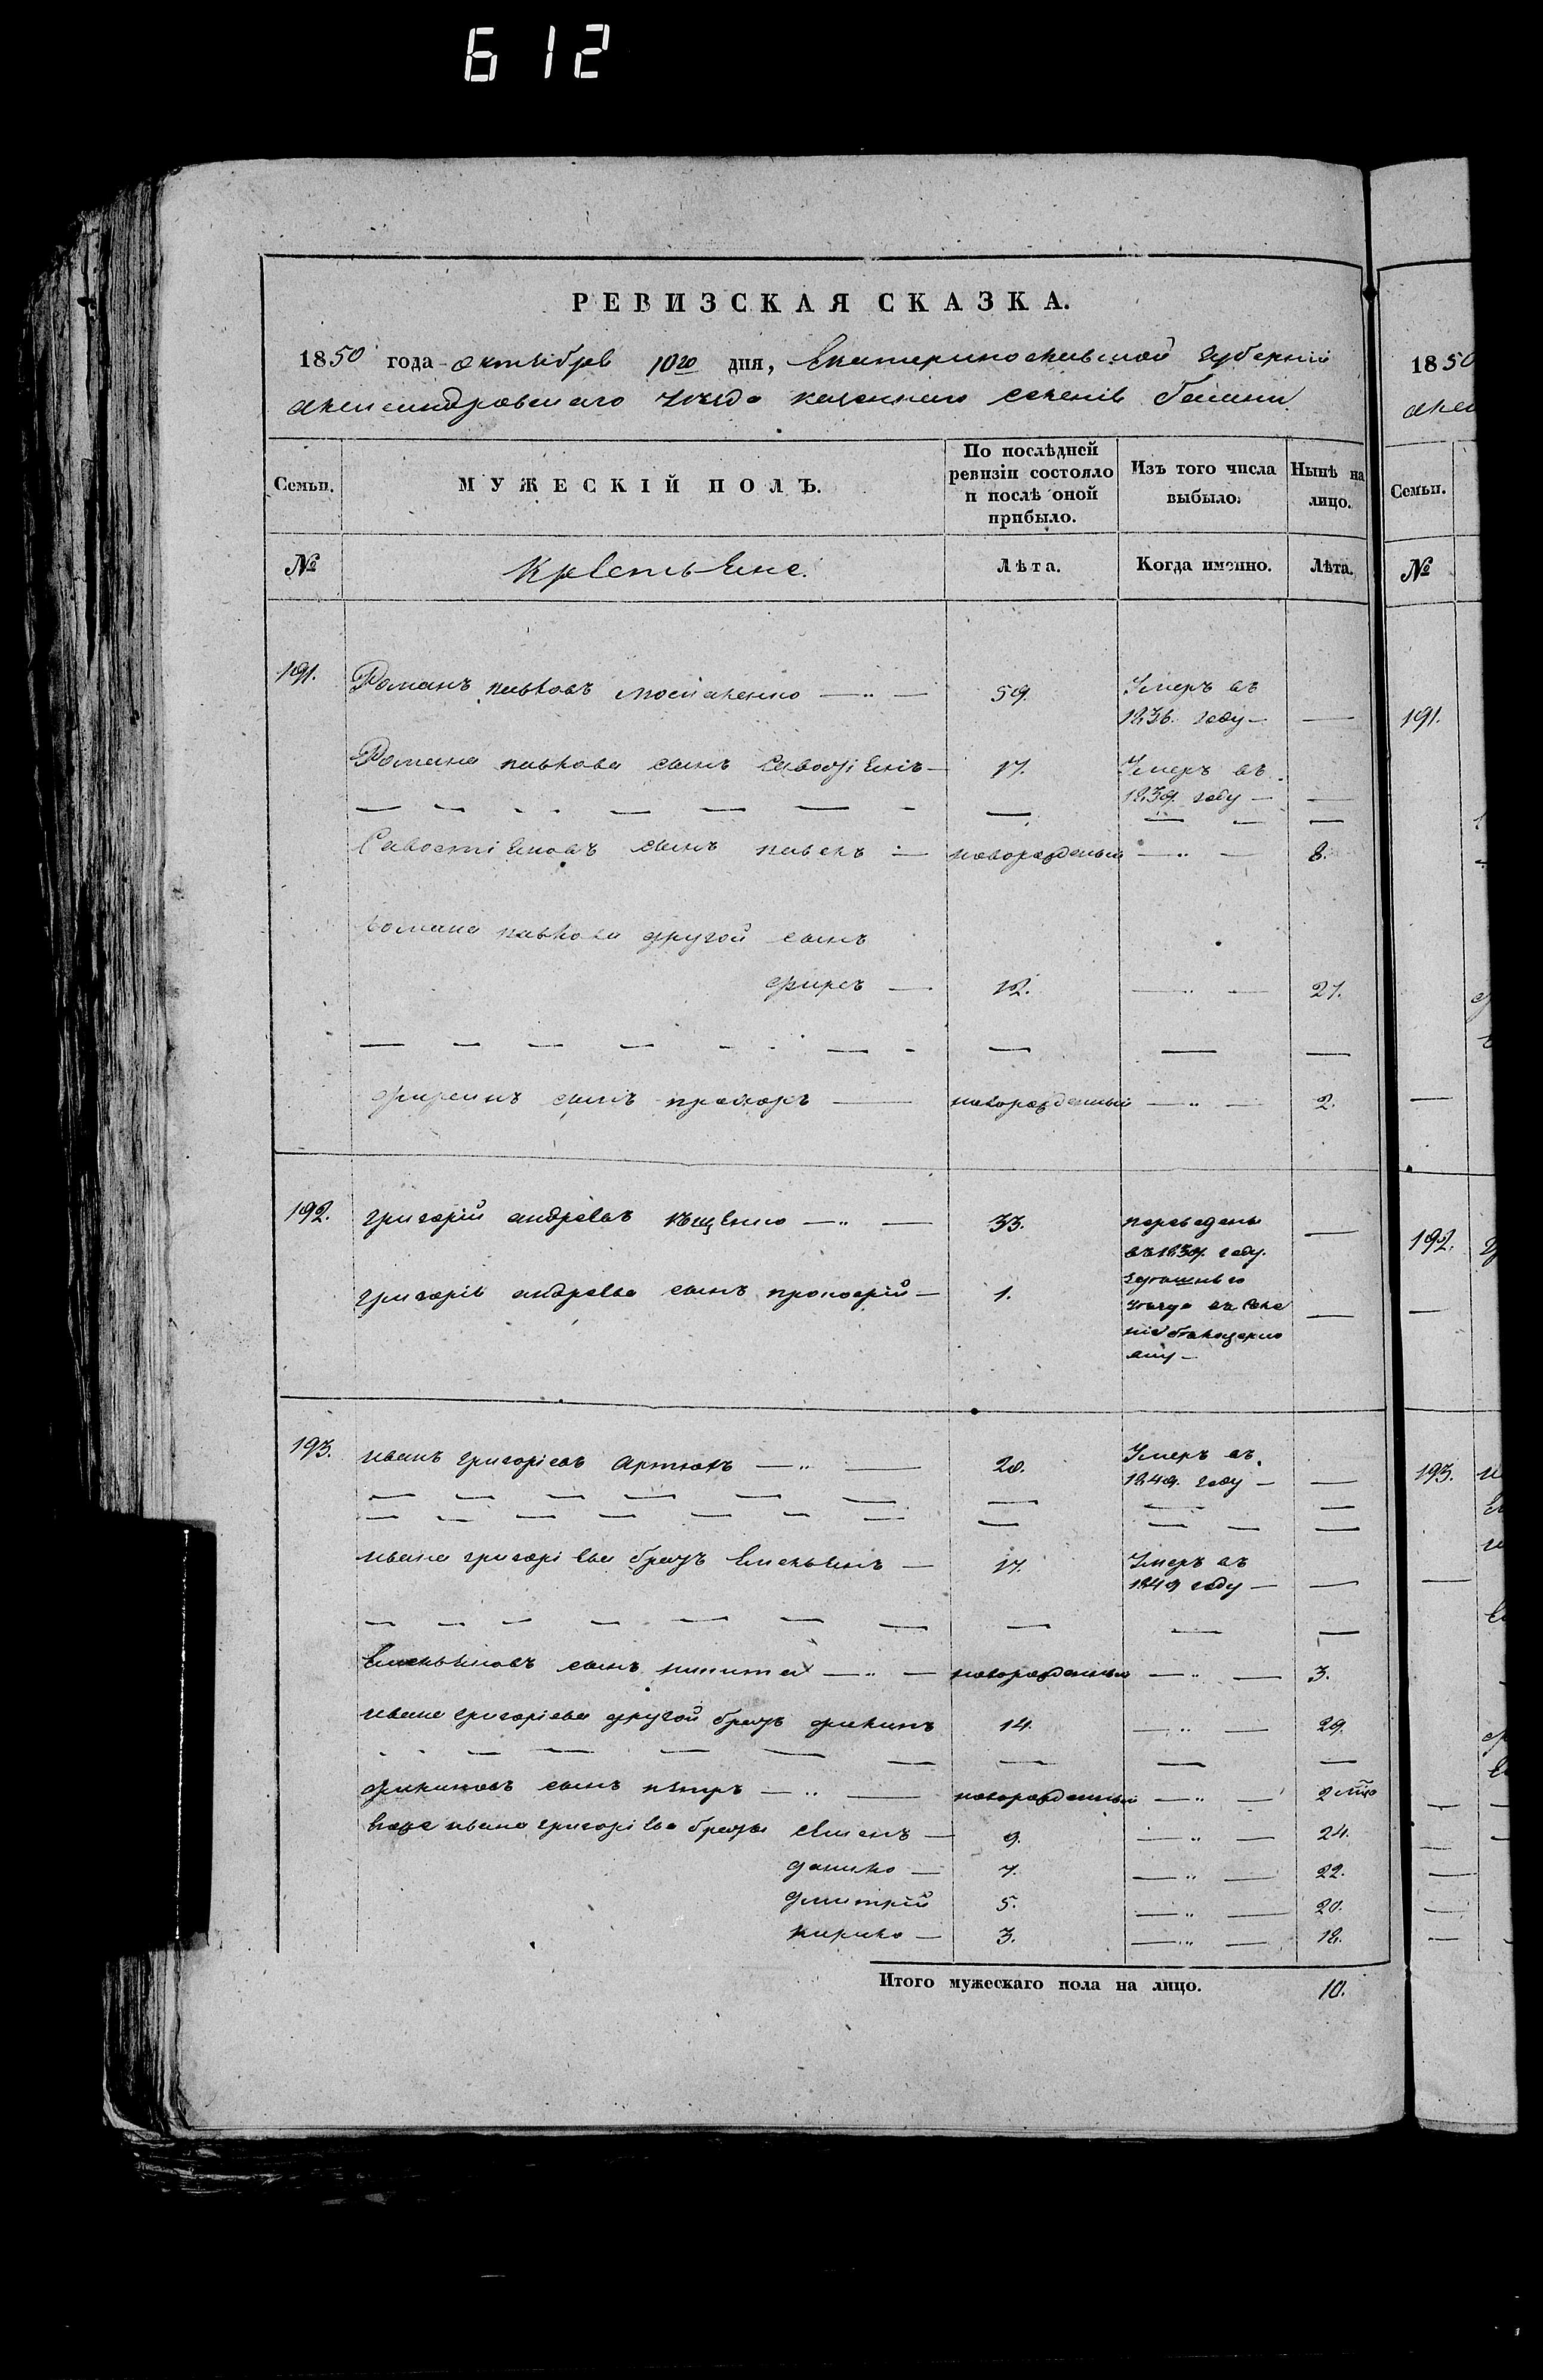 612
РЕВИЗСКАЯ СКАЗКА.
1850 года октября 10го дня, Екатеринославской губерніи
александровскаго уезда казеннаго селенія балки
Семьи.
МУЖЕСКІЙ ПОЛЪ.
По послѣдней ревизіи состояло и послѣ оной прибыло.
Изъ того числа выбыло.
Нынѣ на лицо.
№
Крестьяне.
Лѣта.
Когда именно.
Лѣта.
191. Романъ павловъ — 59. Умеръ въ
1836. году —
Романа павлова сынъ Савостіянъ — 17. Умеръ въ
1839. году —
Савостіяновъ сынъ павелъ — новорожденый — 8.
Романа павлова другой сынъ
фирсъ — 12. — 27.
фирсинъ сынъ прохоръ — новорожденный — 2.
192. григорій андреевъ — 33. переведены
въ 1839. году.
григорія андреева сынъ прокофій — 1.
уезда въ селе
ніе белозерку
193. иванъ григоріевъ Артюхъ — 20. Умеръ въ
1849. году —
ивана григоріева братъ Емельянъ — 17. Умеръ въ
1849 году —
Емельяновъ сынъ никита — новорожденный — 3.
ивана григоріева другой братъ филипъ 14. — 29.
филиповъ сынъ пётръ — новорожденный — 2
ивана григоріева братья Семенъ — 9. — 24.
данило — 7. — 22.
дмитрій 5. — 20.
кирило — 3. — 18.
Итого мужескаго пола на лицо. 10.
1850
Семьи.
№
191.
192.
193.